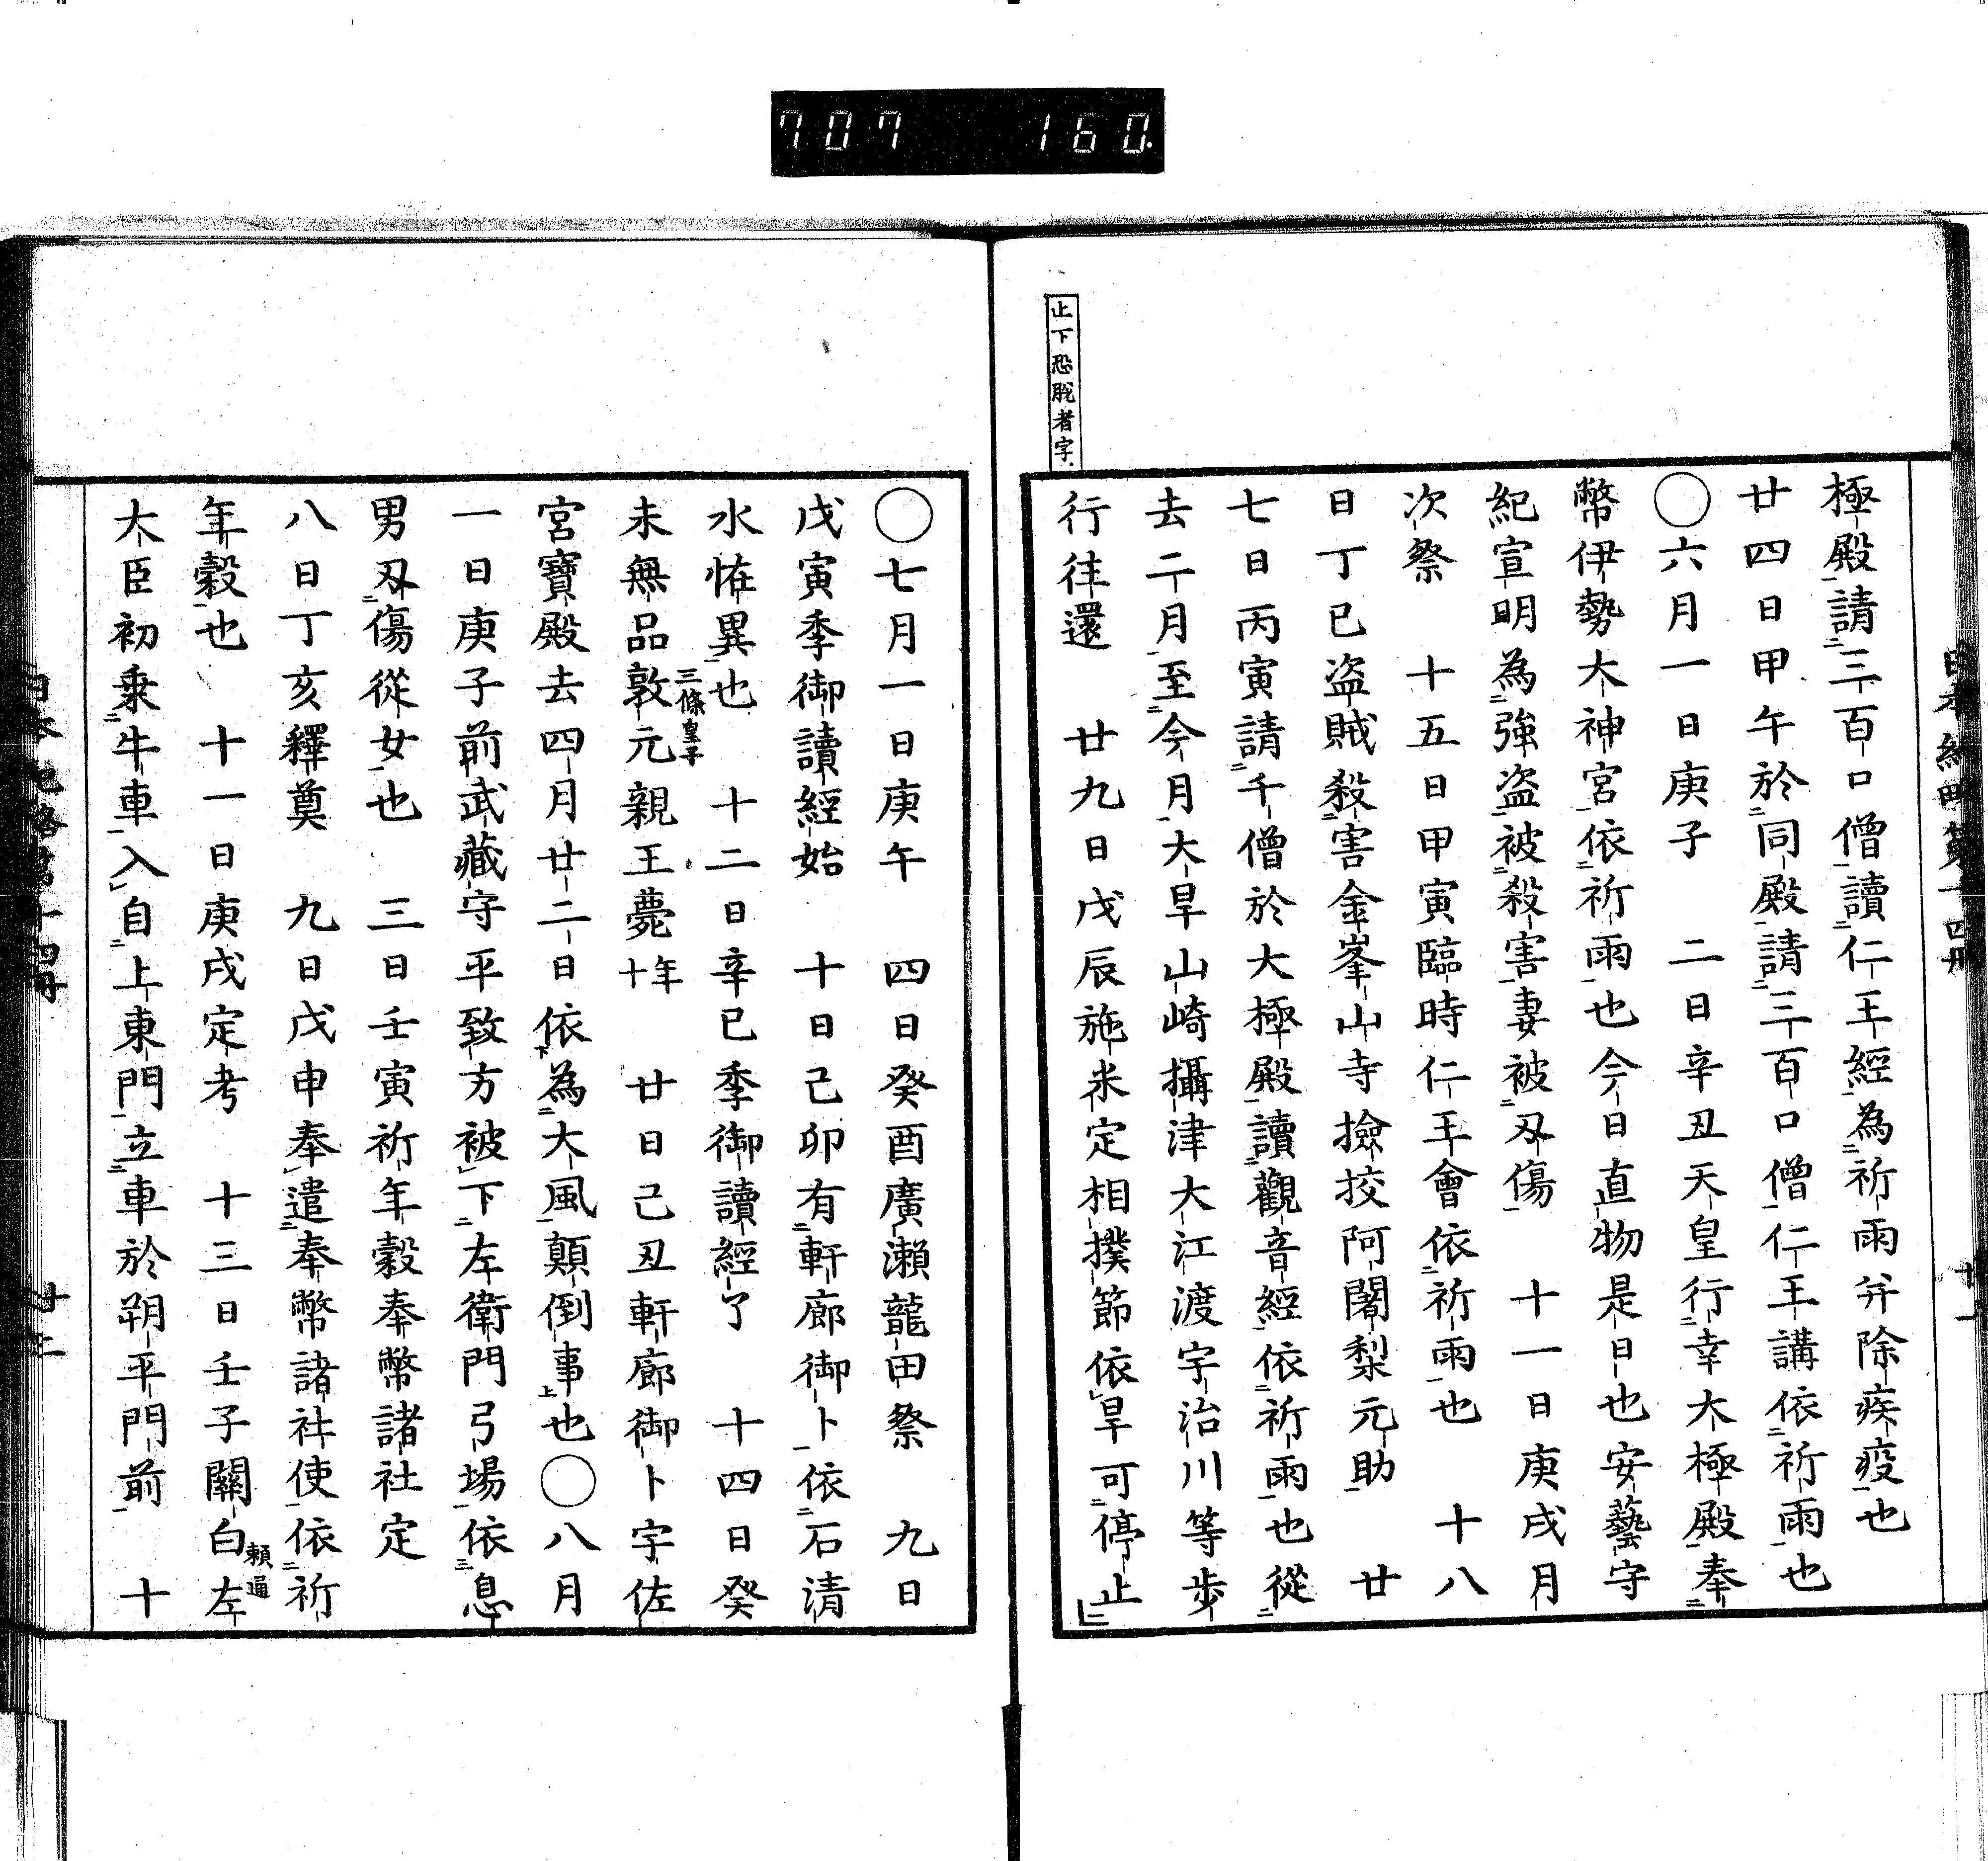 707 160.
止下恐脱者字
極殿請三百口僧讀仁王經為祈雨并除疾疫也
廿四日甲午於同殿請三百口僧仁王講依祈雨也
〇六月一日庚子 二日辛丑天皇行幸大極殿奉
幣伊勢大神宮依祈雨也今日直物是日也安藝守
紀宣明為強盗被殺害妻被刄傷 十一日庚戌月
次祭 十五日甲寅臨時仁王會依祈雨也 十八
日丁巳盗賊殺害金峯山寺撿挍阿闍梨元助 廿
七日丙寅請千僧於大極殿讀觀音經依祈雨也從
去二月至今月大旱山崎攝津大江渡宇治川等步
行往還 廿九日戊辰施米定相撲節依旱可停止
〇七月一日庚午 四日癸酉廣瀨龍田祭 九日
戊寅季御讀經始 十日己卯有軒廊御卜依石清
水恠異也 十二日辛巳季御讀經了 十四日癸
未無品敦元親王薨十年 廿日己丑軒廊御卜宇佐
三條皇子
宮寶殿去四月廿二日依為大風顛倒事也〇八月
一日庚子前武藏守平致方被下左衛門弓場依息
男刄傷從女也 三日壬寅祈年穀奉幣諸社定
八日丁亥釋奠 九日戊申奉遣奉幣諸社使依祈
年穀也 十一日庚戌定考 十三日壬子關白左
頼通
大臣初乗牛車入自上東門立車於朔平門前 十